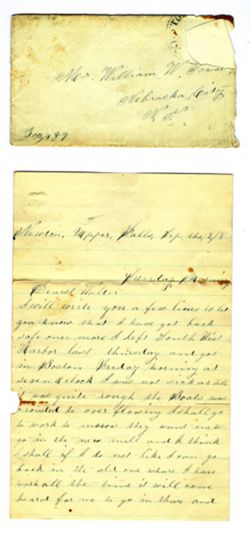 Mr. William W.
Nebraska City
N. T.
Newton, Upper, Falls, Sep, the, 2/8
Sunday
Dearst Walter
I will write you a few lines to let
you know that I have got back
safe once more I left South West
Harbor last thirsday and got
in Boston Friday morning at
seven oclock I was not sick at all
it was quite rough the Boats was
crouded to over flowing I shall go
to work to morow they want me to
go in the new mill and I think
I shall if I do not like I can go
back in the old one where I have
work all the time it will come
heard for me to go in thare and